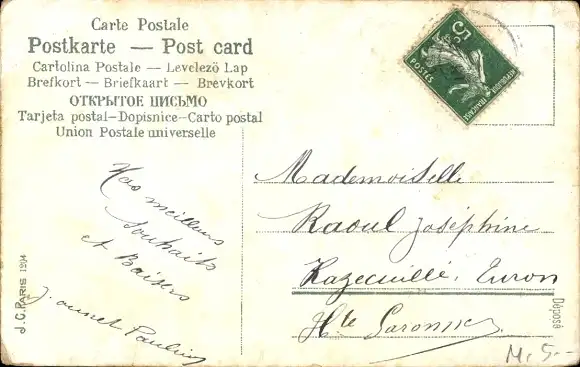 Carte Postale
Postkarte — Post card
Cartolina Postale — Levelező Lap
Brefkort — Briefkaart — Brevkort
ОТКРЫТОЕ ПИСЬМО
Tarjeta postal—Dopisnice—Carto postal
Union Postale universelle
5
POSTES
REPUBLIQUE FRANCAISE
Nos meilleurs
souhaits
et Baisers
Pauline
J.C. PARIS 1294
Mademoiselle
Raoul Joséphine
Hte Garonne
Déposé
M. 5.-